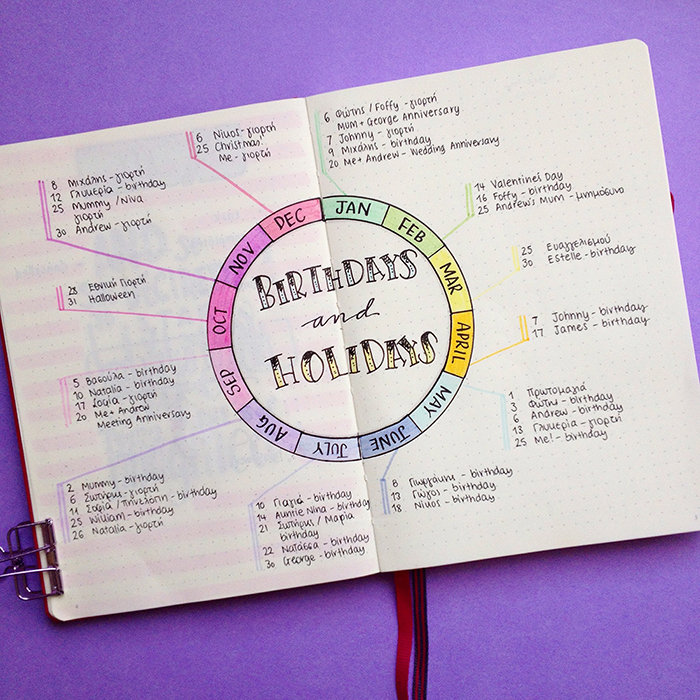 BIRTHDAYS
and
HOLIDAYS
JAN
6 Φώτης / Foffy - γιορτή
MUM + George Anniversary
7 Johnny - γιορτή
9 Μιχάλης - birthday
20 Me + Andrew - Wedding Anniversary
FEB
14 Valentine's Day
16 Foffy - birthday
25 Andrew's Mum - μνημόσυνο
MAR
25 Ευαγγελισμού
30 Estelle - birthday
APRIL
7 Johnny - birthday
17 James - birthday
MAY
1 Πρωτομαγιά
3 Φώτης - birthday
6 Andrew - birthday
13 Γλυκερία - γιορτή
25 Me! - birthday
JUNE
8 - birthday
13 Γιώγος - birthday
18 Νίκος - birthday
JULY
10 Γιαγιά - birthday
14 Auntie Nina - birthday
21 Σωτήρης / Μαρία
birthday
22 Νατάσσα - birthday
30 George - birthday
AUG
2 Mummy - birthday
6 Σωτήρης - γιορτή
11 Σοφία / Πηνελόπη - birthday
25 William - birthday
26 Natalia - γιορτή
SEP
5 Βασούλα - birthday
10 Natalia - birthday
17 Σοφία - γιορτή
20 Me + Andrew
Meeting Anniversary
OCT
28 Εθνική Γιορτή
31 Halloween
NOV
8 Μιχάλης - γιορτή
12 Γλυκερία - birthday
25 Mummy / Νίνα
γιορτή
30 Andrew - γιορτή
DEC
6 Νίκος - γιορτή
25 Christmas!
Me - γιορτή